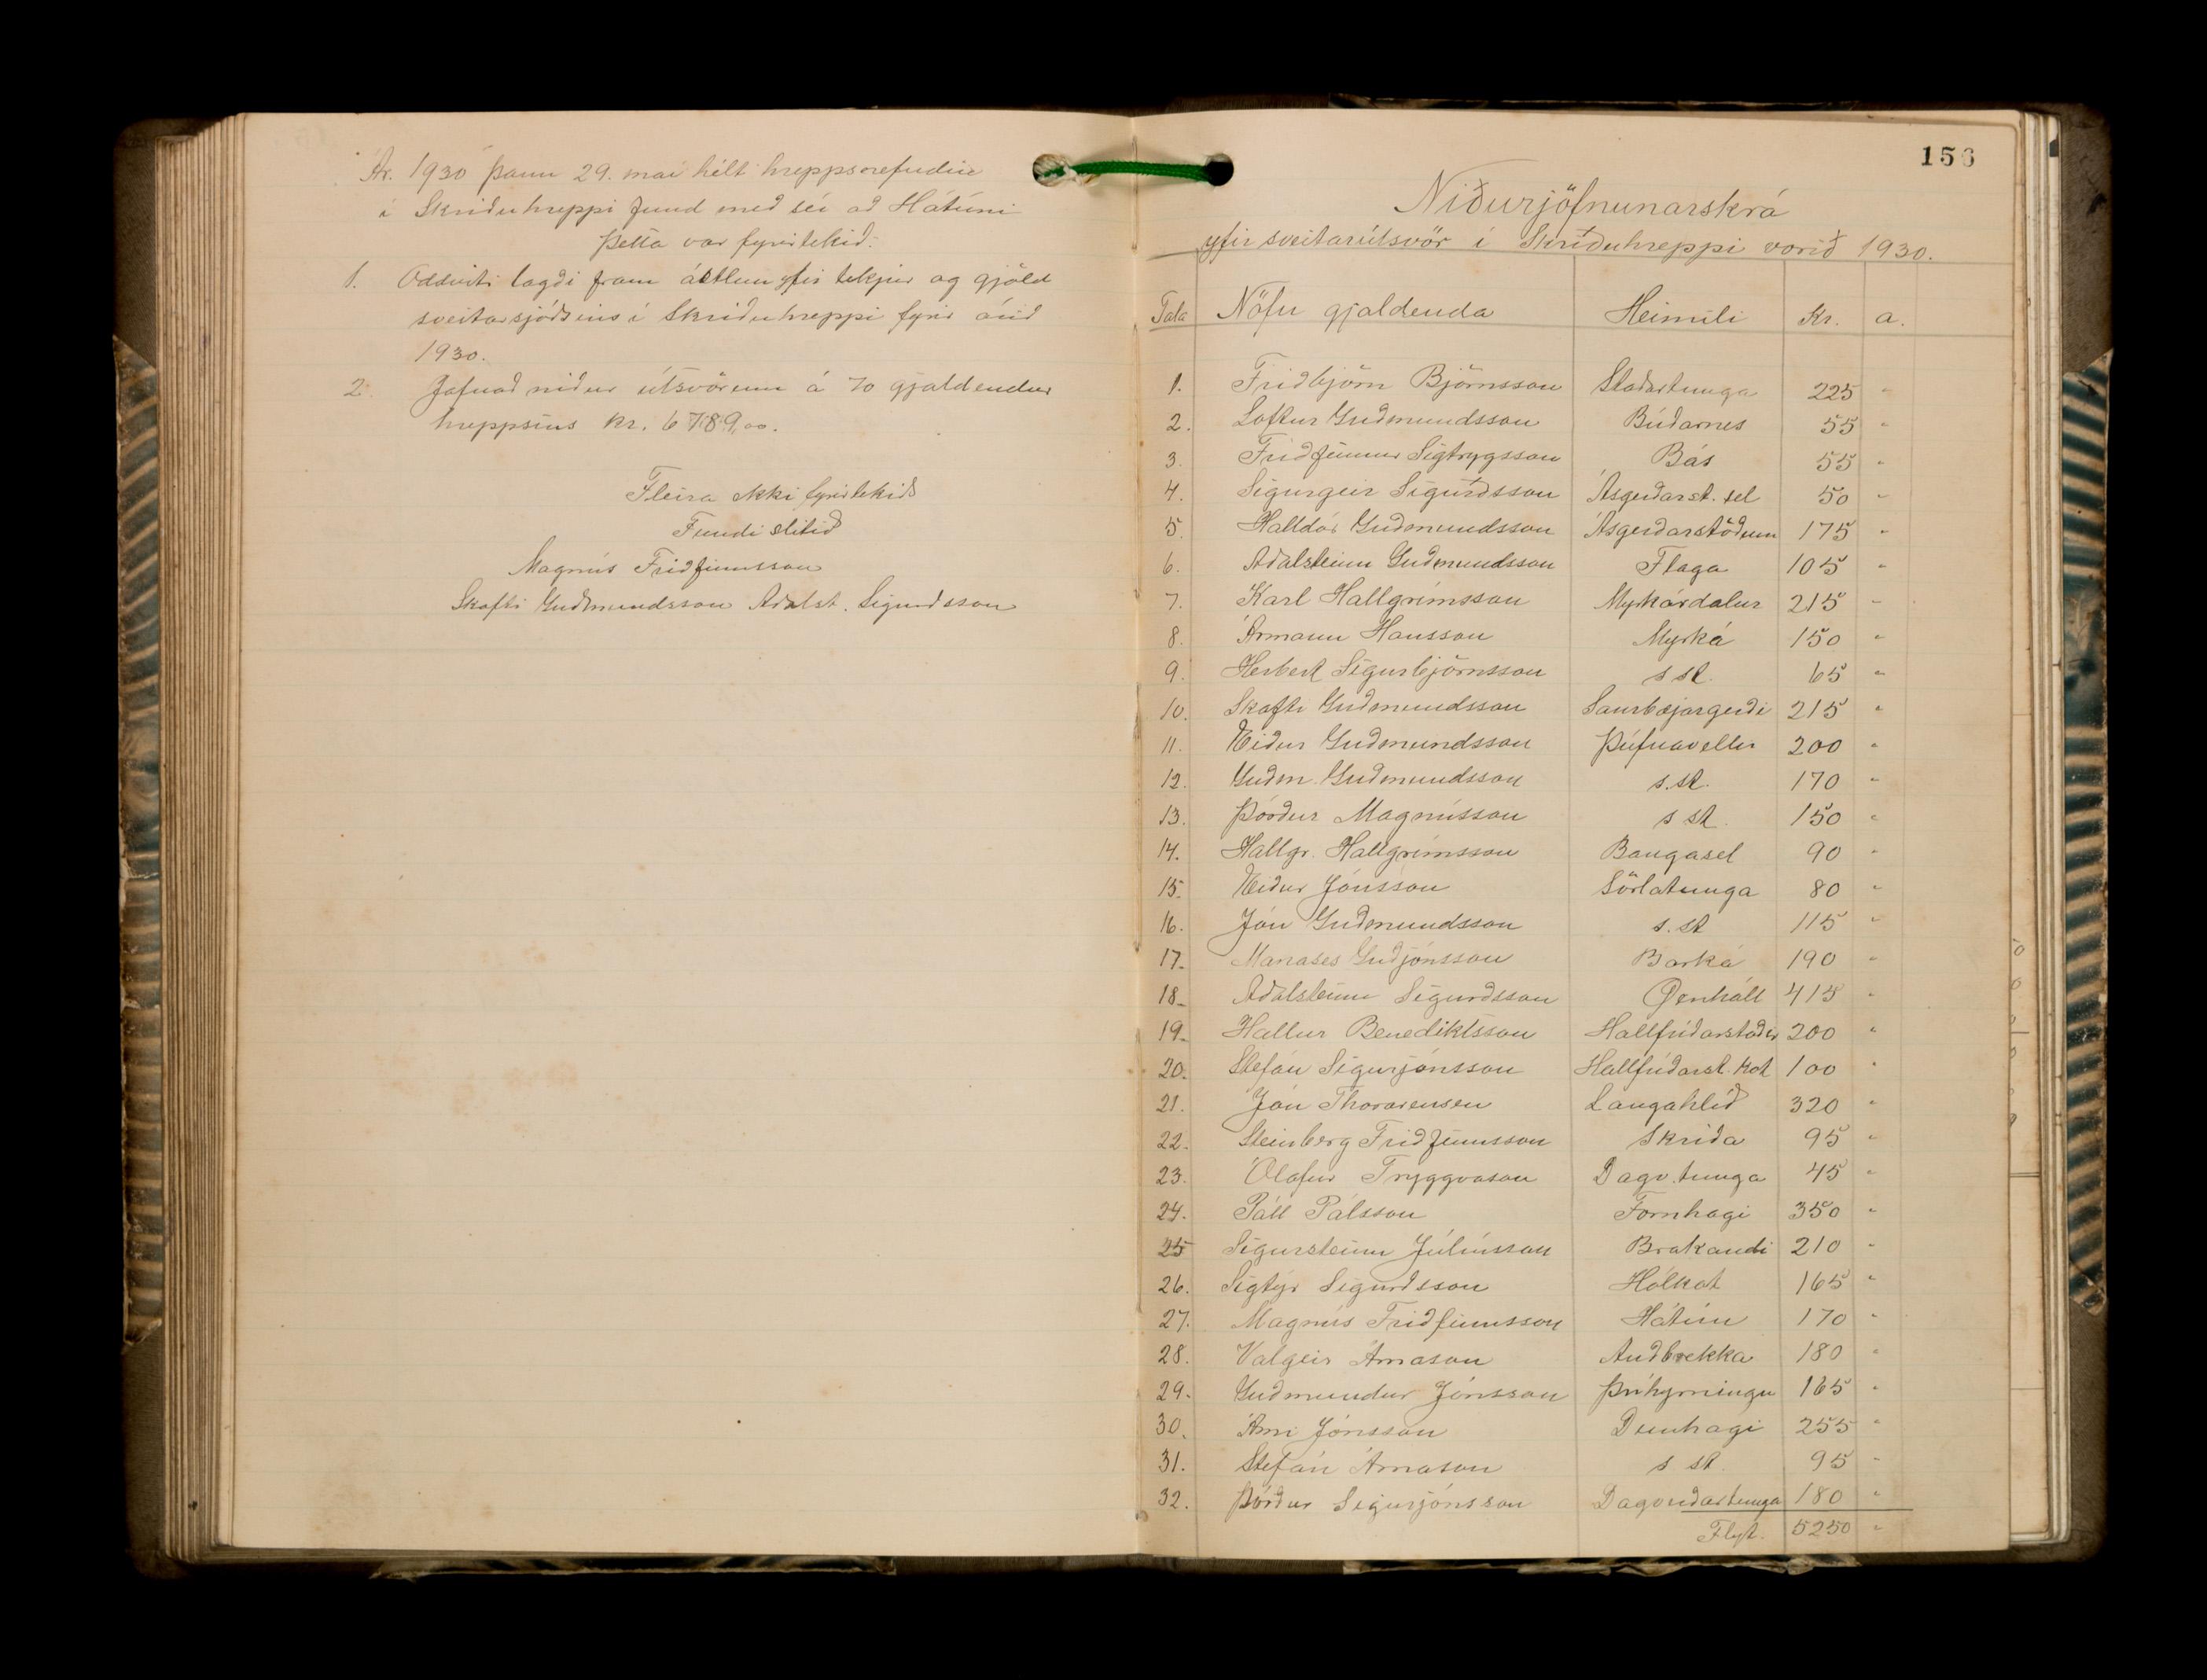 Ár. 1930 þann 29. mai hélt hreppsnefndin
í Skriðuhreppi fund með séi að Hátúni
þetta var fyrirtekið:
1. Oddviti lagði fram áætlun yfir tekjur og gjöld
sveitarsjóðsins í Skriðuhreppi fyrir árið
1930.
2. Jafnað niður útsvörum á 70 gjaldendur
hreppsins kr. 6789,00.
Fleira ekki fyrirtekið
Fundi slitið
Magnús Friðfinnsson
Skafti Guðmundsson Aðalst. Sigurðsson
156
Niðurjöfnunarskrá
yfir sveitarútsvör í Skriðuhreppi vorið 1930.
Tala Nöfn gjaldenda Heimili Kr. a.
1. Friðbjörn Björnsson Staðartunga 225 "
2. Loftur Guðmundsson Búðarnes 55 "
3. Friðfinnur Sigtryggsson Bás 55 "
4. Sigurgeir Sigurðsson Ásgerðarst. sel 50 "
5. Halldór Guðmundsson Ásgerðarstöðum 175 "
6. Aðalsteinn Guðmundsson Flaga 105 "
7. Karl Hallgrímsson Myrkárdalur 215 "
8. Ármann Hansson Myrká 150 "
9. Herbert Sigurbjörnsson s st. 65 "
10. Skafti Guðmundsson Saurbæjargerði 215 "
11. Eiður Guðmundsson Þúfnavellir 200 "
12. Guðm. Guðmundsson s.st. 170 "
13. Þórður Magnússon s st. 150 "
14. Hallgr. Hallgrímsson Baugasel 90 "
15. Eiður Jónsson Sörlatunga 80 "
16. Jón Guðmundsson s.st 115 "
17. Manases Guðjónsson Barká 190 "
18. Aðalsteinn Sigurðsson Öxnhóll 415 "
19. Hallur Benediktsson Hallfríðarstaðir 200 "
20. Stefán Sigurjónsson Hallfríðarst. kot 100 "
21. Jón Thorarensen Langahlíð 320 "
22. Steinberg Friðfinnsson Skriða 95 "
23. Ólafur Tryggvason Dagv. tunga 45 "
24. Páll Pálsson Fornhagi 350 "
25 Sigursteinn Júlíusson Brakandi 210 "
26. Sigtýr Sigurðsson Hólkot 165 "
27. Magnús Friðfinnsson Hátún 170 "
28. Valgeir Árnason Auðbrekka 180 "
29. Guðmundur Jónsson Þríhyrningu 165 "
30. Árni Jónsson Dunhagi 255 "
31. Stefán Árnason s st. 95 "
32. Þórður Sigurjónsson Dagverðartunga 180 "
Flyt. 5250 "